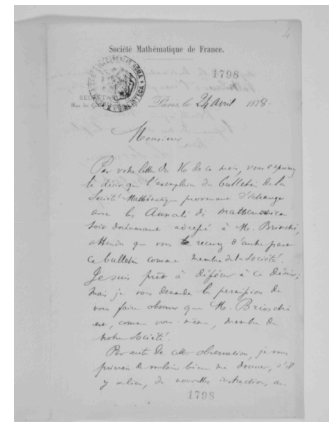 Société Mathématique de France.
1798
Paris le 24 avril 1878.
Monsieur,
Par votre lettre du 16 de ce mois, vous exprimez
le désir que l'exemplaire du Bulletin de la
Société Mathématique provenant d'échange
avec les Annali di matematica
soit adressé à Mr. Brioschi,
attendu que vous recevez d'autre part
ce Bulletin comme membre de la Société.
Je suis prêt à déférer à ce désir,
mais je vous demande la permission de
vous faire observer que Mr Brioschi
est, comme vous même, membre de
notre Société.
Par suite de cette observation, je vous
prierai de vouloir bien me donner, s'il
y a lieu, de nouvelles instructions, au
1798